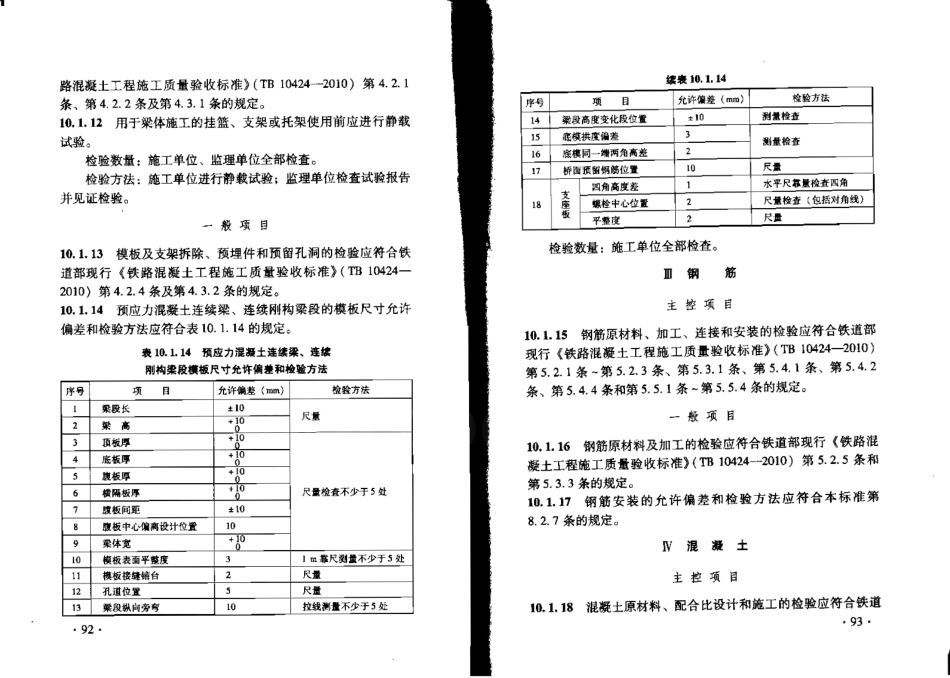 路混凝土工程施工质量验收标准》(TB 10424—2010) 第 4.2.1
条、第 4.2.2 条及第 4.3.1 条的规定。
10.1.12 用于梁体施工的挂篮、支架或托架使用前应进行静载
试验。
检验数量：施工单位、监理单位全部检查。
检验方法：施工单位进行静载试验；监理单位检查试验报告
并见证检验。
一 般 项 目
10.1.13 模板及支架拆除、预埋件和预留孔洞的检验应符合铁
道部现行《铁路混凝土工程施工质量验收标准》(TB 10424—
2010) 第 4.2.4 条及第 4.3.2 条的规定。
10.1.14 预应力混凝土连续梁、连续刚构梁段的模板尺寸允许
偏差和检验方法应符合表 10.1.14 的规定。
表 10.1.14 预应力混凝土连续梁、连续
刚构梁段模板尺寸允许偏差和检验方法
序号 项 目 允许偏差 (mm) 检验方法
1 梁段长 ±10 尺量
2 梁 高 +10 0
3 顶板厚 +10 0 尺量检查不少于 5 处
4 底板厚 +10 0
5 腹板厚 +10 0
6 横隔板厚 +10 0
7 腹板间距 ±10
8 腹板中心偏离设计位置 10
9 梁体宽 +10 0
10 模板表面平整度 3 1 m 靠尺测量不少于 5 处
11 模板接缝错台 2 尺量
12 孔道位置 5 尺量
13 梁段纵向旁弯 10 拉线测量不少于 5 处
· 92 ·
续表 10.1.14
序号 项 目 允许偏差 (mm) 检验方法
14 梁段高度变化段位置 ±10 测量检查
15 底模拱度偏差 3 测量检查
16 底模同一端两角高差 2
17 桥面预留钢筋位置 10 尺量
18 支座板 四角高度差 1 水平尺靠量检查四角
螺栓中心位置 2 尺量检查（包括对角线）
平整度 2 尺量
检验数量：施工单位全部检查。
Ⅲ 钢 筋
主 控 项 目
10.1.15 钢筋原材料、加工、连接和安装的检验应符合铁道部
现行《铁路混凝土工程施工质量验收标准》(TB 10424—2010)
第 5.2.1 条～第 5.2.3 条、第 5.3.1 条、第 5.4.1 条、第 5.4.2
条、第 5.4.4 条和第 5.5.1 条～第 5.5.4 条的规定。
一 般 项 目
10.1.16 钢筋原材料及加工的检验应符合铁道部现行《铁路混
凝土工程施工质量验收标准》(TB 10424—2010) 第 5.2.5 条和
第 5.3.3 条的规定。
10.1.17 钢筋安装的允许偏差和检验方法应符合本标准第
8.2.7 条的规定。
Ⅳ 混 凝 土
主 控 项 目
10.1.18 混凝土原材料、配合比设计和施工的检验应符合铁道
· 93 ·